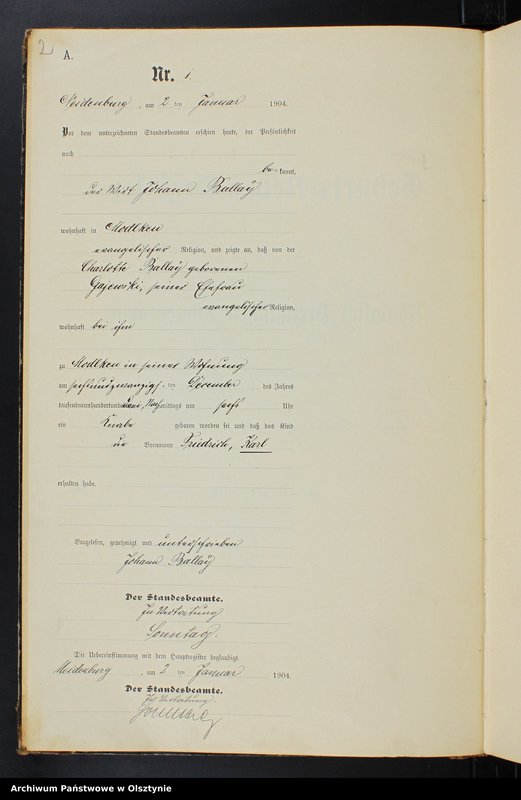 2
A.
Nr. 1.
Neidenburg, am 2 ten Januar 1904.
Vor dem unterzeichneten Standesbeamten erschien heute, der Persönlichkeit
nach
be kannt,
der Wirt Johann Ballaÿ
wohnhaft in Modlken
evangelischer Religion, und zeigte an, daß von der
Charlotte Ballaÿ geborenen
Gajewski, seiner Ehefrau
evangelischer Religion,
wohnhaft bei ihm
zu Modlken in seiner Wohnung
am sechsundzwanzigs. ten December des Jahres
tausendneunhundertunddrei, Nachmittags um sechs Uhr
ein Knabe geboren worden sei und daß das Kind
die Vornamen Friedrich, Karl
erhalten habe.
Vorgelesen, genehmigt und unterschrieben
Johann Ballaÿ
Der Standesbeamte.
In Vertretung
Sonntag.
Die Uebereinstimmung mit dem Hauptregister beglaubigt.
Neidenburg, am 2 ten Januar 1904.
Der Standesbeamte.
In Vertretung.
Sonntag
Archiwum Państwowe w Olsztynie